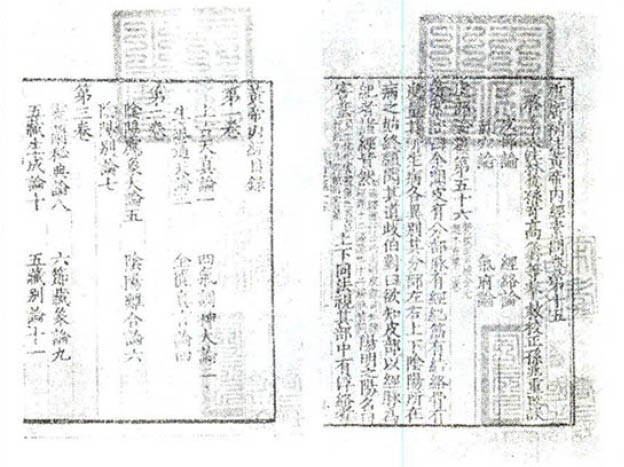 新刊補註黃帝內經素問卷第十五
啓玄子次註林億孫奇高保衡等奉敕校正孫兆重改誤
皮部論 經絡論
氣穴論 氣府論
皮部論篇第五十六
黃帝問曰余聞皮有分部脉有經紀筋有結絡骨有
度量其所生病各異別其分部左右上下陰陽所在
病之始終願聞其道岐伯對曰欲知皮部以經脉為
紀者諸經皆然 陽明之陽名曰
害蜚 上下同法視其部中有浮絡者
黃帝內經目錄
第一卷
上古天真論一 四氣調神大論二
生氣通天論三 金匱真言論四
第二卷
陰陽應象大論五 陰陽離合論六
陰陽別論七
第三卷
靈蘭秘典論八 六節藏象論九
五藏生成論十 五藏別論十一